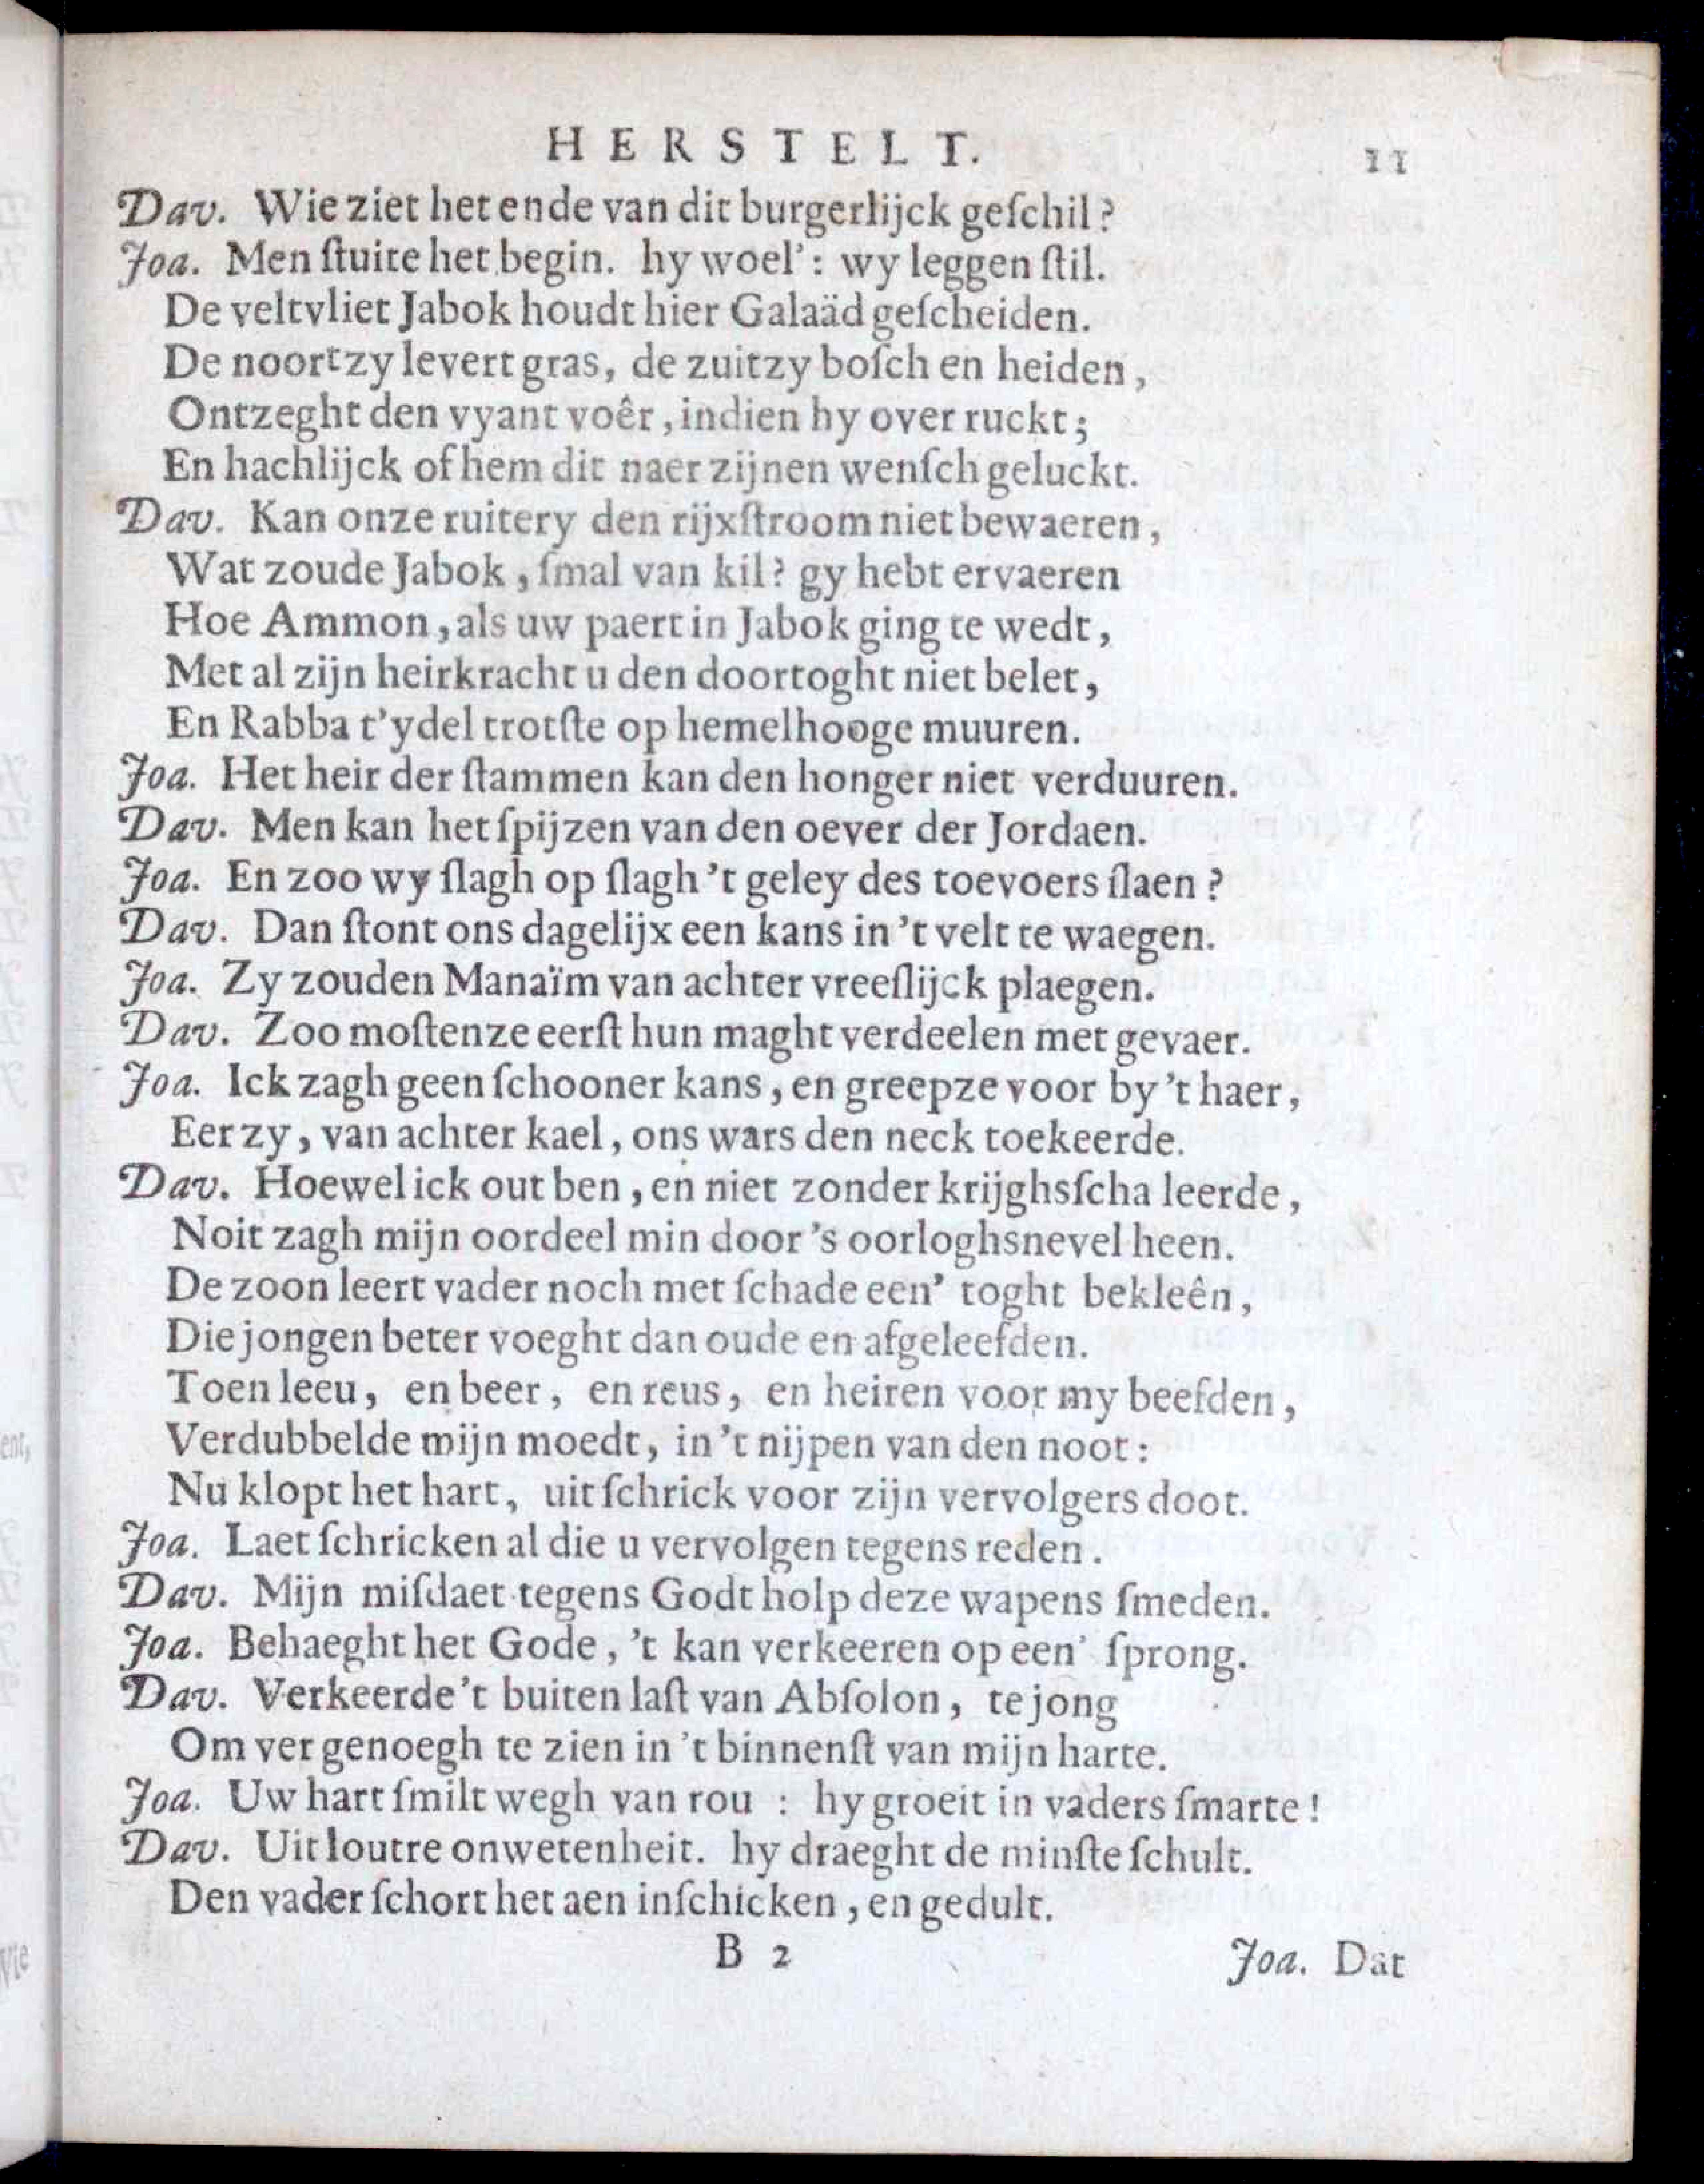 HERSTELT. 11
Dav. Wie ziet het ende van dit burgerlijck geſchil?
Joa. Men ſtuite het begin. hy woel': wy leggen ſtil.
De veltvliet Jabok houdt hier Galaäd geſcheiden.
De noortzy levert gras, de zuitzy boſch en heiden,
Ontzeght den vyant voêr, indien hy over ruckt;
En hachlijck of hem dit naer zijnen wenſch geluckt.
Dav. Kan onze ruitery den rijxſtroom niet bewaeren,
Wat zoude Jabok, ſmal van kil? gy hebt ervaeren
Hoe Ammon, als uw paert in Jabok ging te wedt,
Met al zijn heirkracht u den doortoght niet belet,
En Rabba t'ydel trotſte op hemelhooge muuren.
Joa. Het heir der ſtammen kan den honger niet verduuren.
Dav. Men kan het ſpijzen van den oever der Jordaen.
Joa. En zoo wy ſlagh op ſlagh 't geley des toevoers ſlaen?
Dav. Dan ſtont ons dagelijx een kans in 't velt te waegen.
Joa. Zy zouden Manaïm van achter vreeſlijck plaegen.
Dav. Zoo moſtenze eerſt hun maght verdeelen met gevaer.
Joa. Ick zagh geen ſchooner kans, en greepze voor by 't haer,
Eer zy, van achter kael, ons wars den neck toekeerde.
Dav. Hoewel ick out ben, en niet zonder krijghsſcha leerde,
Noit zagh mijn oordeel min door 's oorloghsnevel heen.
De zoon leert vader noch met ſchade een' toght bekleên,
Die jongen beter voeght dan oude en afgeleefden.
Toen leeu, en beer, en reus, en heiren voor my beefden,
Verdubbelde mijn moedt, in 't nijpen van den noot:
Nu klopt het hart, uit ſchrick voor zijn vervolgers doot.
Joa. Laet ſchricken al die u vervolgen tegens reden.
Dav. Mijn miſdaet tegens Godt holp deze wapens ſmeden.
Joa. Behaeght het Gode, 't kan verkeeren op een' ſprong.
Dav. Verkeerde 't buiten laſt van Abſolon, te jong
Om ver genoegh te zien in 't binnenſt van mijn harte.
Joa. Uw hart ſmilt wegh van rou : hy groeit in vaders ſmarte!
Dav. Uit loutre onwetenheit. hy draeght de minſte ſchult.
Den vader ſchort het aen inſchicken, en gedult.
B 2 Joa. Dat